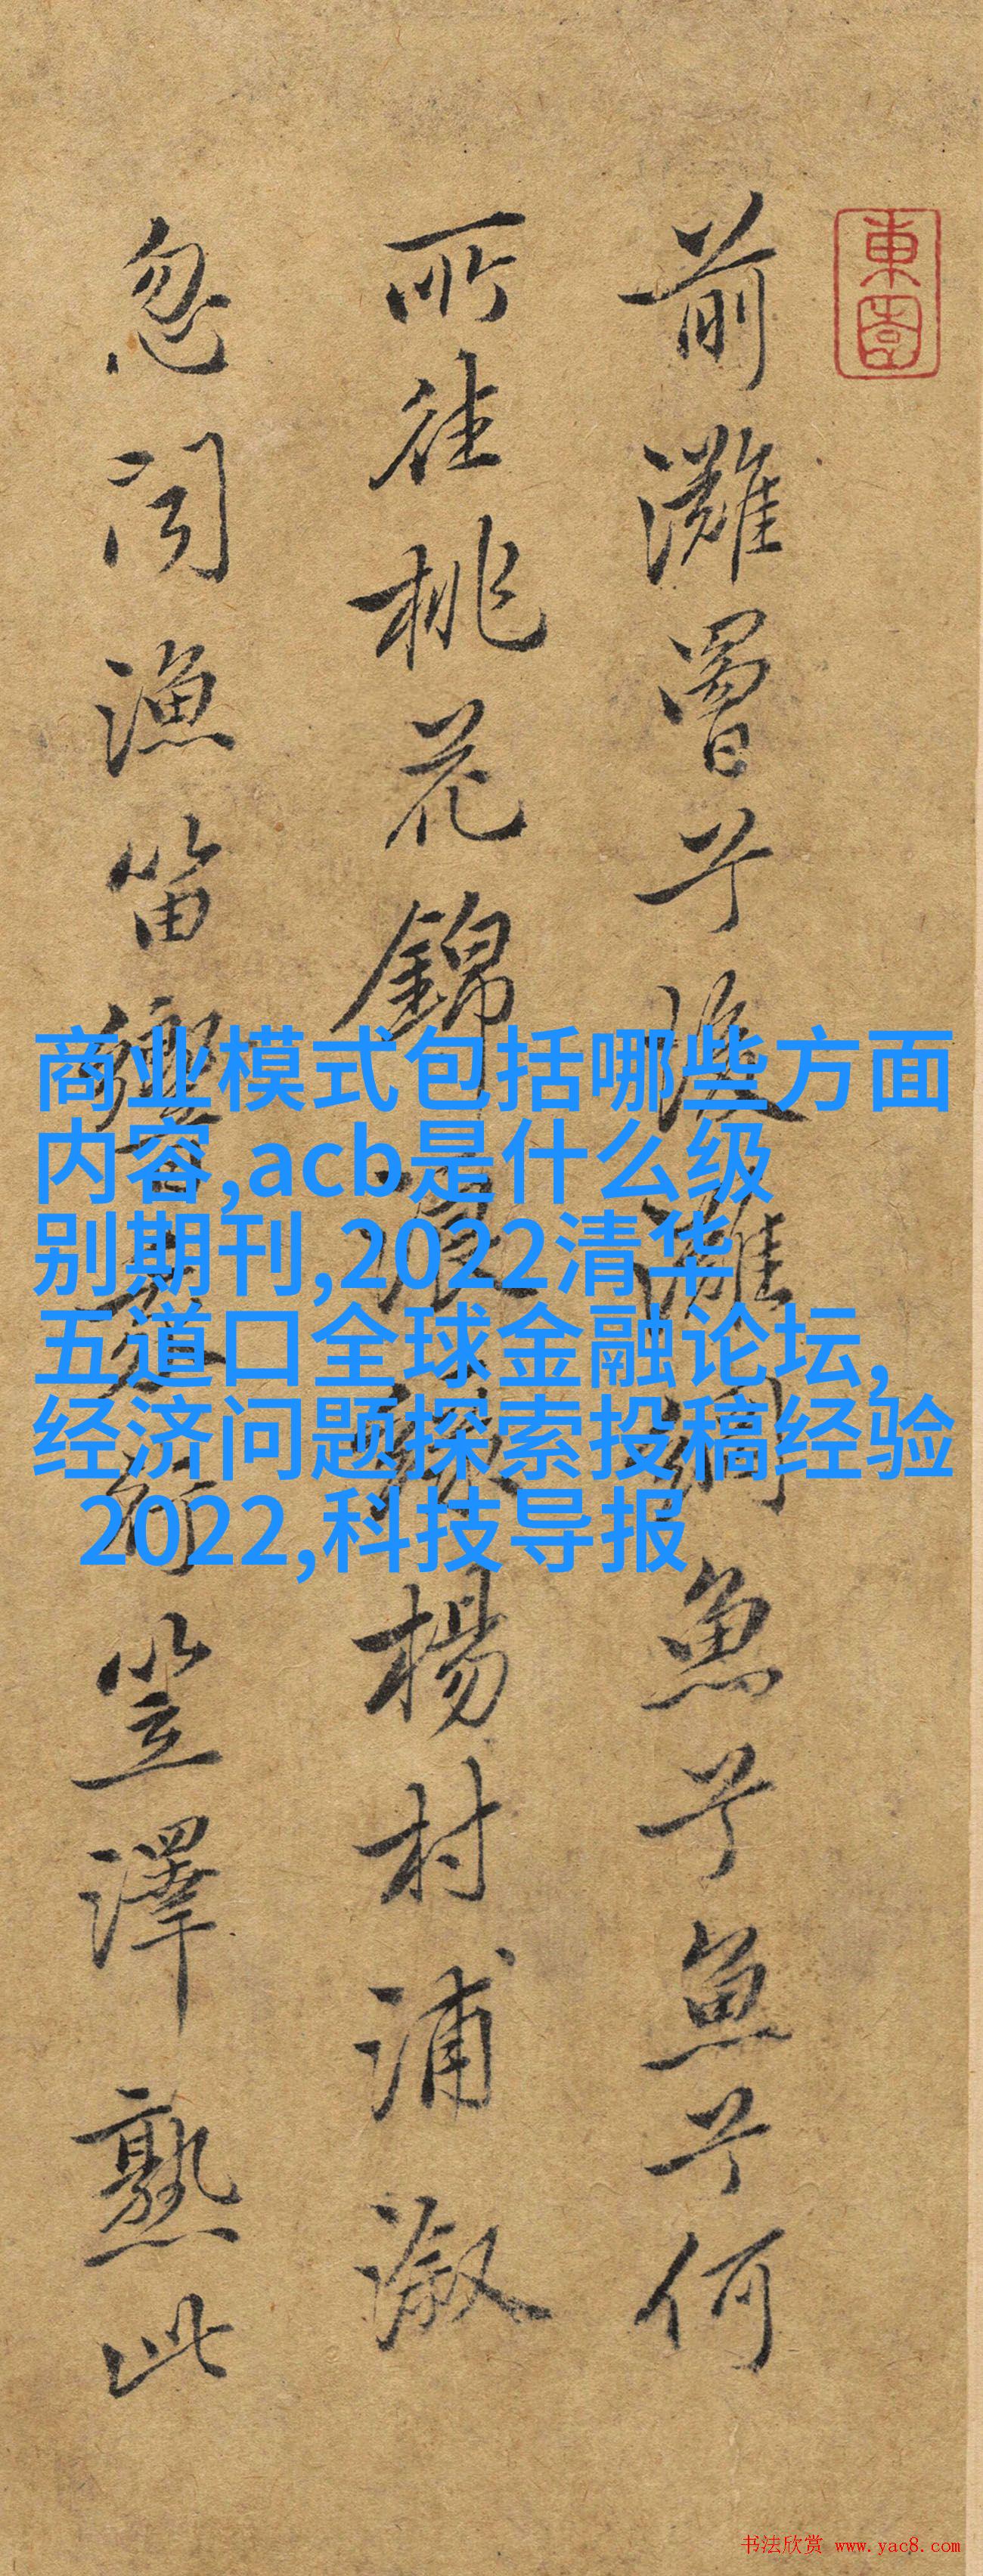 東園
前灘罾兮後灘網魚兮魚兮何
所往桃花錦浪綠楊村浦漵
忽聞漁笛響我行笠澤熟此
商业模式包括哪些方面
内容,acb是什么级
别期刊,2022清华
五道口全球金融论坛,
经济问题探索投稿经验
2022,科技导报
书法欣赏 www.yac8.com